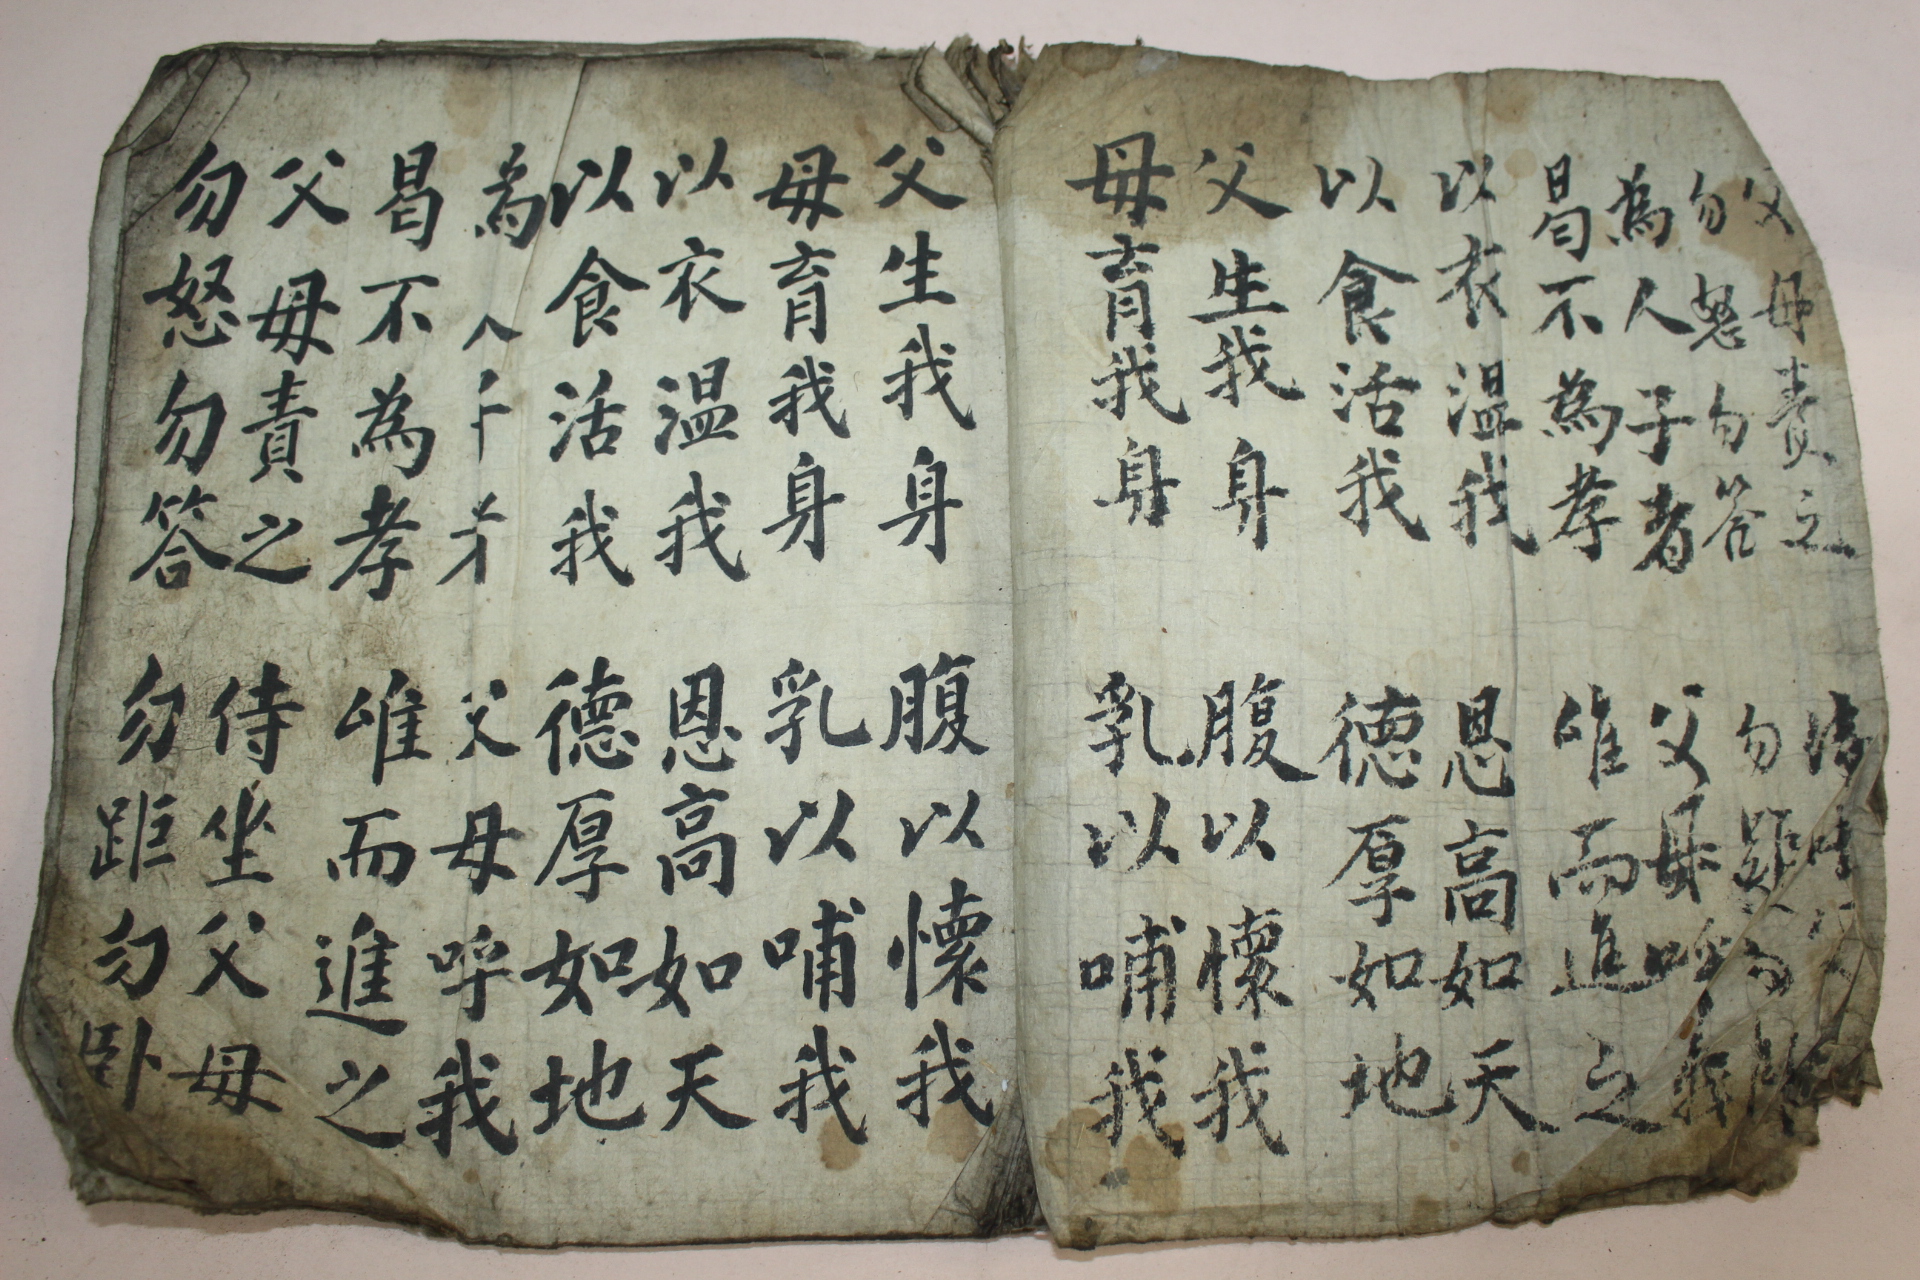 父母責之
勿怒勿答 勿距勿
為人子者 父母呼我
曷不為孝 唯而進之
以衣温我 恩高如天
以食活我 德厚如地
父生我身 腹以懷我
母育我身 乳以哺我
父生我身 腹以懷我
母育我身 乳以哺我
以衣温我 恩高如天
以食活我 德厚如地
為人 父母呼我
曷不為孝 唯而進之
父母責之 侍坐父母
勿怒勿答 勿距勿卧